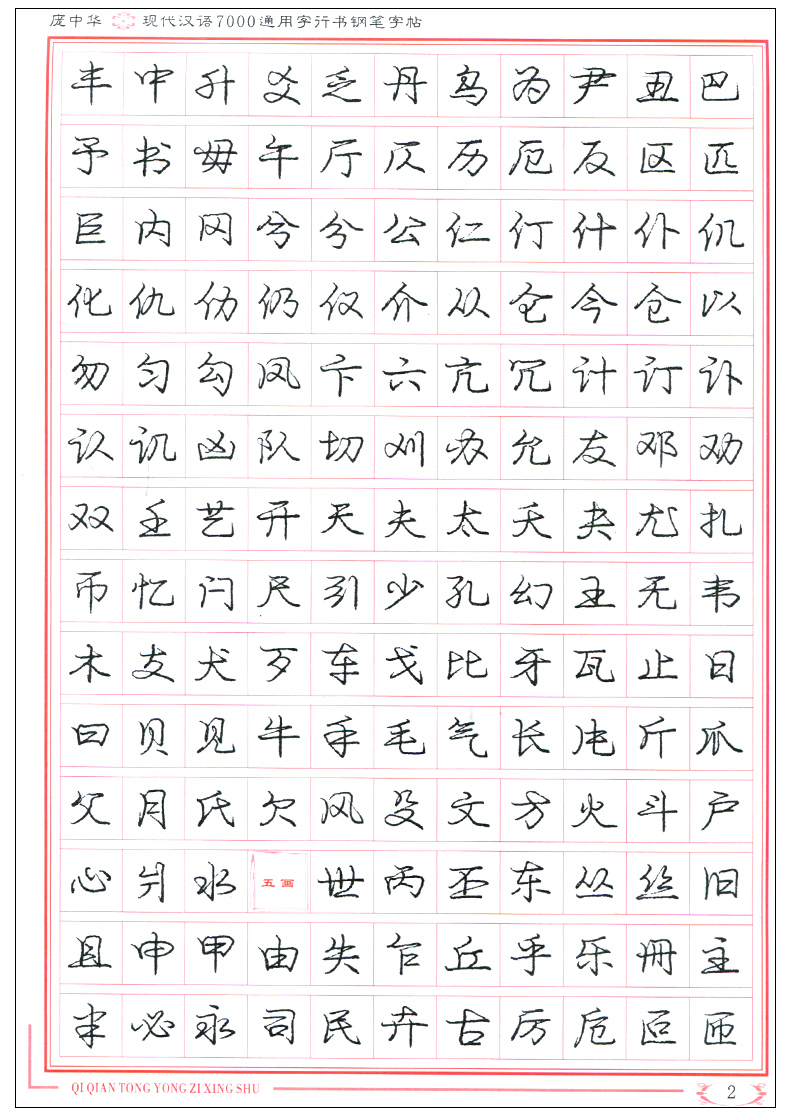 庞中华 现代汉语7000通用字行书钢笔字帖
丰 中 升 爻 乏 丹 乌 为 尹 丑 巴
予 书 毋 午 厅 仄 历 厄 反 区 匹
巨 内 冈 兮 分 公 仁 仃 什 仆 仉
化 仇 仂 仍 仅 介 从 仑 今 仓 以
勿 匀 勾 凤 卞 六 亢 冗 计 订 讣
认 讥 凶 队 切 刈 办 允 友 邓 劝
双 壬 艺 开 天 夫 太 夭 夬 尤 扎
币 忆 闩 尺 引 少 孔 幻 王 无 韦
木 支 犬 歹 车 戈 比 牙 瓦 止 日
曰 贝 见 牛 手 毛 气 长 片 斤 爪
父 月 氏 欠 风 殳 文 方 火 斗 户
心 爿 水 五画 世 丙 丕 东 丛 丝 旧
且 申 甲 由 失 乍 丘 乎 乐 册 主
半 必 永 司 民 卉 古 厉 卮 叵 匝
QI QIAN TONG YONG ZI XING SHU 2